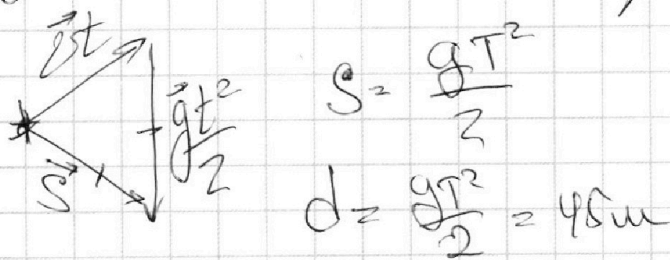 v⃗t
g⃗t²/2
S⃗
S = gT²/2
d = gT²/2 = 45м